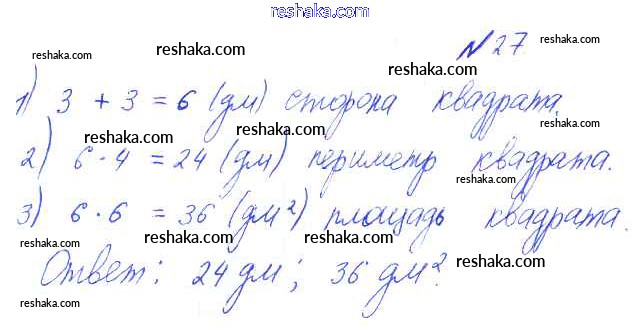 reshaka.com
№27
reshaka.com reshaka.com reshaka.com
1) 3 + 3 = 6 (дм) сторона квадрата.
reshaka.com reshaka.com reshaka.com
2) 6 · 4 = 24 (дм) периметр квадрата.
3) 6 · 6 = 36 (дм²) площадь квадрата.
reshaka.com reshaka.com reshaka.com reshaka.com
Ответ: 24 дм; 36 дм².
reshaka.com reshaka.com reshaka.com